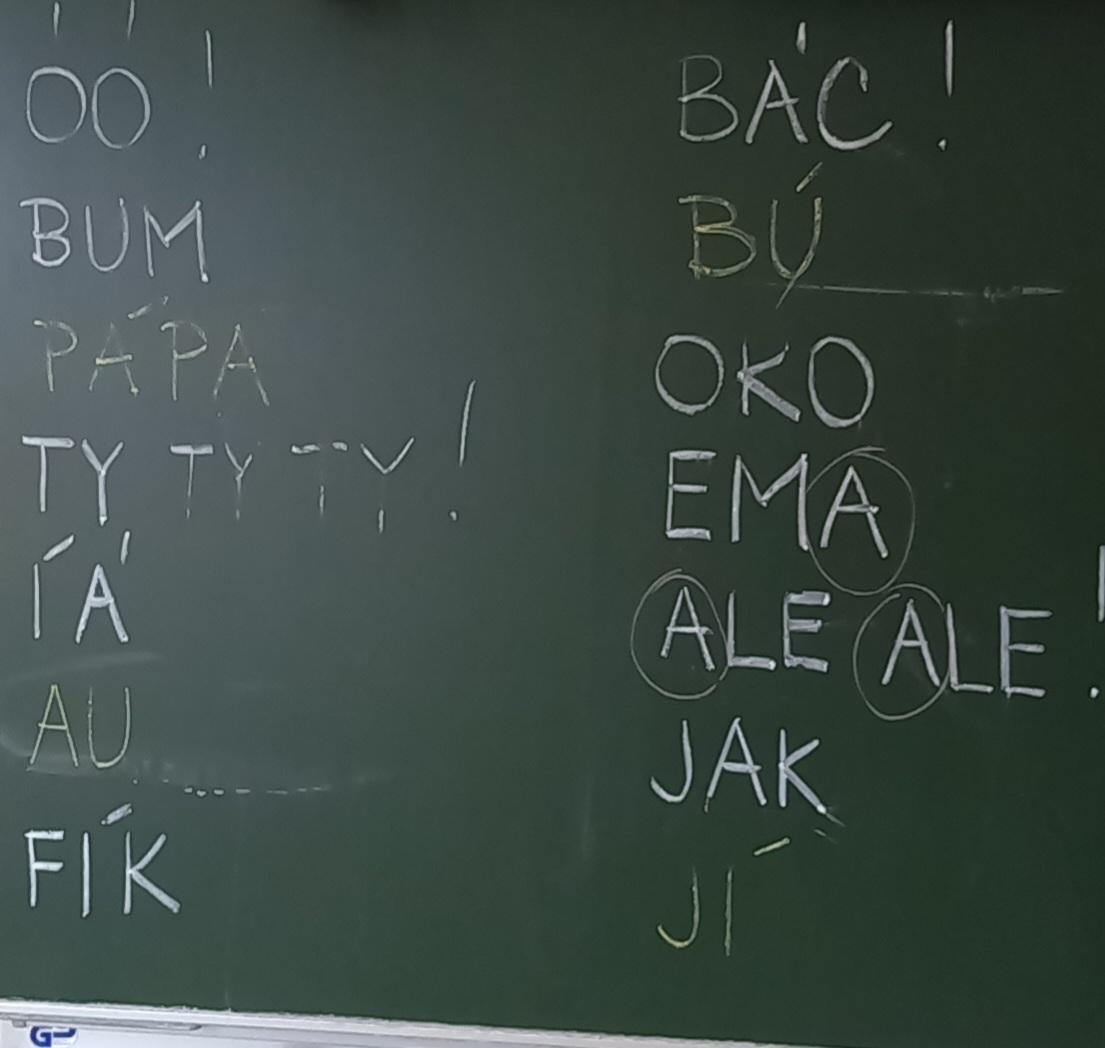 ÓÓ!
BUM
PÁPA
TY TY TY!
ÍÁ
AU
FÍK
BÁC!
BÚ
OKO
EMA
ALE ALE!
JAK
JÍ